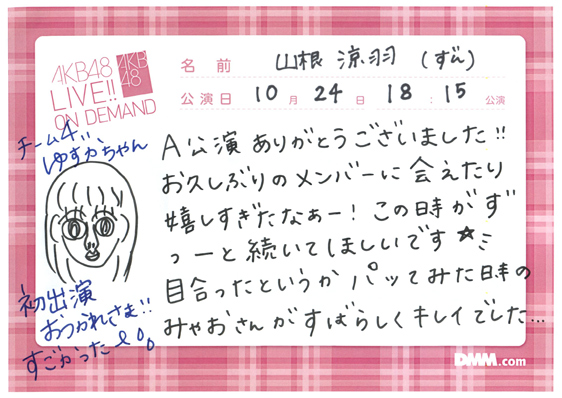 AKB48
LIVE!!
ON DEMAND
AKB
48
名前 山根 涼羽 (ずん)
公演日 10月 24日 18:15 公演
A公演 ありがとうございました!!
お久しぶりのメンバーに 会えたり
嬉しすぎたなぁー! この時が ず
っーと 続いて ほしいです☆ミ
目合ったというか パッてみた日キの
みゃおさんが すばらしくキレイでした…
チーム4、、
ゆすかちゃん
初出演
おつかれさま!!
すごかった
DMM.com